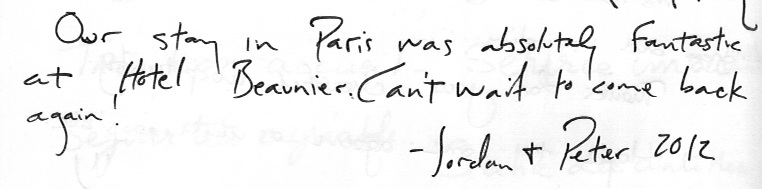 Our stay in Paris was absolutely fantastic
at Hotel Beaunier. Can't wait to come back
again!
- Jordan + Peter 2012